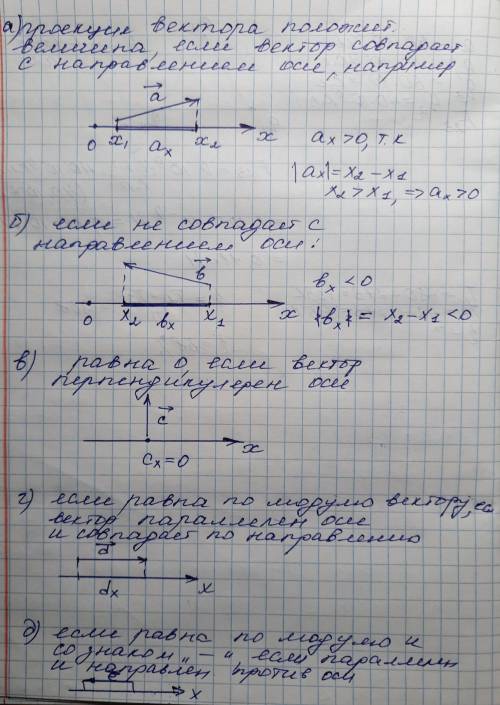 а) проекция вектора положит.
величина, если вектор совпадает
с направлением оси, например
a
0 x₁ aₓ x₂ x
aₓ>0, т.к
|aₓ|=x₂-x₁
x₂>x₁, =>aₓ>0
б) если не совпадает с
направлением оси:
в
0 x₂ вₓ x₁ x
вₓ<0
вₓ = x₂-x₁<0
в) равна 0, если вектор
перпендикулерен оси
c
x
cₓ=0
г) если равна по модулю вектору, если
вектор параллелен оси
и совпадает по направлению
d
dₓ x
д) если равна по модулю и
со знаком „–“ если параллелен
и направлен против оси
x